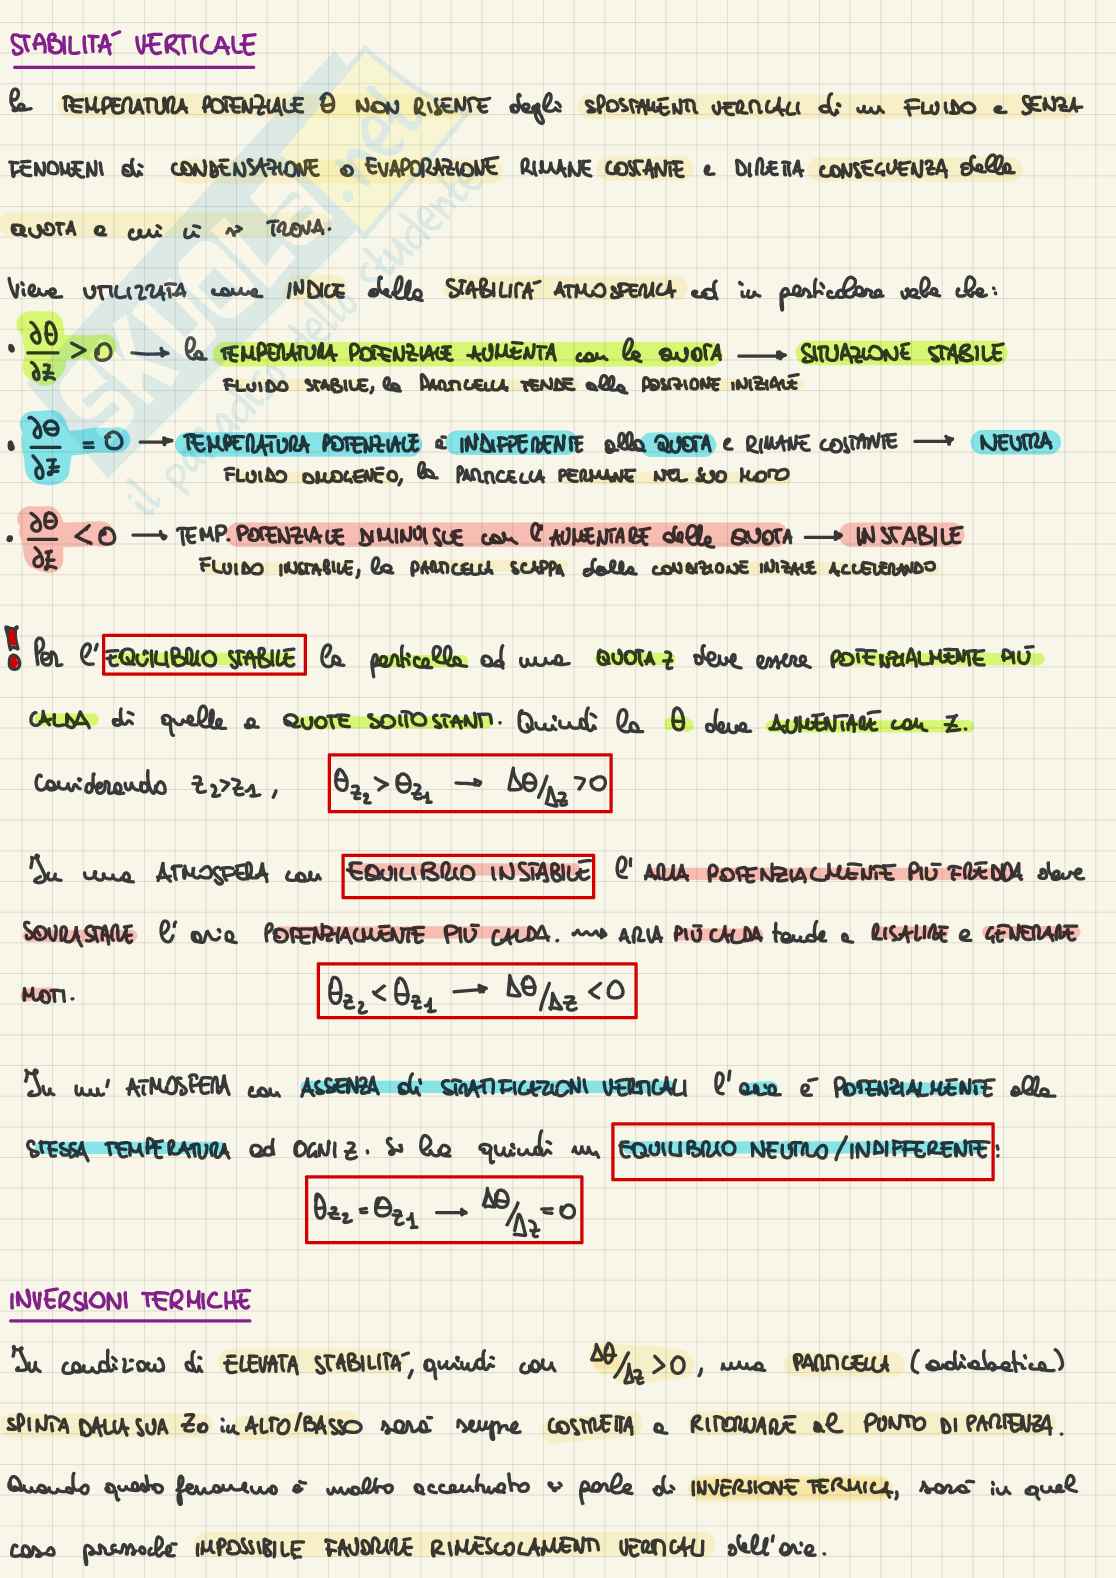 STABILITA' VERTICALE
la TEMPERATURA POTENZIALE θ NON RISENTE degli SPOSTAMENTI VERTICALI di un FLUIDO e SENZA
FENOMENI di CONDENSAZIONE o EVAPORAZIONE RIMANE COSTANTE e DIRETTA CONSEGUENZA della
QUOTA a cui ci si TROVA.
Viene UTILIZZATA come INDICE della STABILITA' ATMOSFERICA ed in particolare vale che:
• ∂θ/∂z > 0 → la TEMPERATURA POTENZIALE AUMENTA con la QUOTA → SITUAZIONE STABILE
FLUIDO STABILE, la PARTICELLA TENDE alla POSIZIONE INIZIALE
• ∂θ/∂z = 0 → TEMPERATURA POTENZIALE è INDIFFERENTE alla QUOTA e RIMANE COSTANTE → NEUTRA
FLUIDO OMOGENEO, la PARTICELLA PERMANE NEL SUO MOTO
• ∂θ/∂z < 0 → TEMP. POTENZIALE DIMINUISCE con l'AUMENTARE della QUOTA → INSTABILE
FLUIDO INSTABILE, la PARTICELLA SCAPPA dalla CONDIZIONE INIZIALE ACCELERANDO
! Per l'EQUILIBRIO STABILE la particella ad una QUOTA z deve essere POTENZIALMENTE PIÙ
CALDA di quelle a QUOTE SOTTOSTANTI. Quindi la θ deve AUMENTARE con z.
Considerando z2>z1, θz2 > θz1 → Δθ/Δz > 0
In una ATMOSFERA con EQUILIBRIO INSTABILE l'ARIA POTENZIALMENTE PIÙ FREDDA deve
SOVRASTARE l'aria POTENZIALMENTE PIÙ CALDA. ⇝ ARIA PIÙ CALDA tende a RISALIRE e GENERARE
MOTI. θz2 < θz1 → Δθ/Δz < 0
In un'ATMOSFERA con ASSENZA di STRATIFICAZIONI VERTICALI l'aria è POTENZIALMENTE alla
STESSA TEMPERATURA ad OGNI z. Si ha quindi un EQUILIBRIO NEUTRO/INDIFFERENTE:
θz2 = θz1 → Δθ/Δz = 0
INVERSIONI TERMICHE
In condizioni di ELEVATA STABILITA', quindi con Δθ/Δz > 0, una PARTICELLA (adiabatica)
SPINTA DALLA SUA Z0 in ALTO/BASSO sarà sempre COSTRETTA a RITORNARE al PUNTO DI PARTENZA.
Quando questo fenomeno è molto accentuato si parla di INVERSIONE TERMICA, sarà in quel
caso pressoché IMPOSSIBILE FAVORIRE RIMESCOLAMENTI VERTICALI dell'aria.
SKUOLA.net
il paradiso dello studente